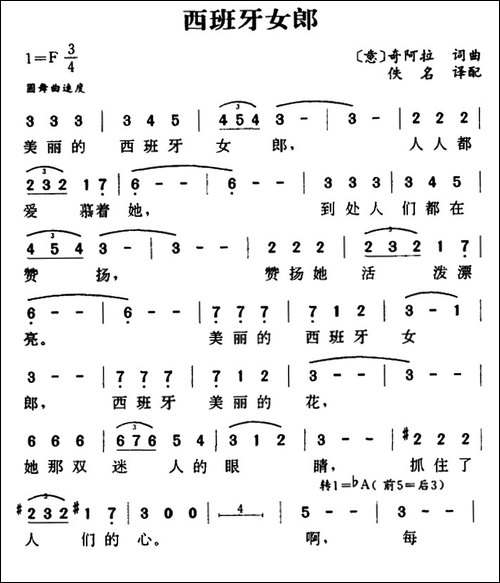 西班牙女郎
1=F 3/4
〔意〕奇阿拉 词曲
佚名 译配
圆舞曲速度
3 3 3 | 3 4 5 | 4 5 4 3 - | 3 - - | 2 2 2 |
美丽的 西班牙 女 郎, 人人都
2 3 2 1 7 | 6 - - | 6 - - | 3 3 3 | 3 4 5 |
爱 慕着 她, 到处人 们都在
4 5 4 3 - | 3 - - | 2 2 2 | 2 3 2 1 7 |
赞 扬, 赞扬她 活 泼漂
6 - - | 6 - - | 7 7 7 | 7 1 2 | 3 - 1 |
亮。 美丽的 西班牙 女
3 - - | 7 7 7 | 7 1 2 | 3 - - | 3 - - |
郎, 西班牙 美丽的 花,
6 6 6 | 6 7 6 5 4 | 3 1 2 | 3 - - | #2 2 2 |
她那双 迷 人的 眼 睛, 抓住了
转1=♭A(前5=后3)
#2 3 2 #1 7 | 3 0 0 | 4 | 5 - - | 3 - - |
人 们的 心。 啊, 每